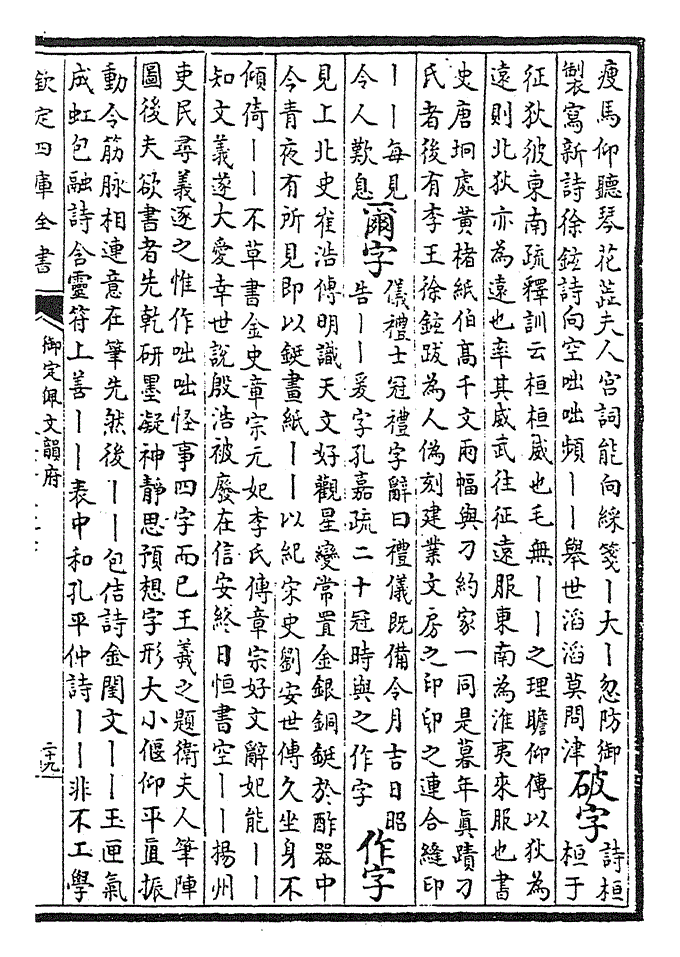 瘦馬仰聽琴花蕋夫人宮詞能向綵箋丨大丨忽防御
製寫新詩徐鉉詩向空咄咄頻丨丨舉世滔滔莫問津
破字
詩桓
桓于
征狄彼東南疏釋訓云桓桓威也毛無丨丨之理瞻仰傳以狄為
遠則北狄亦為遠也率其威武往征遠服東南為淮夷來服也書
史唐坰處黃楮紙伯高千文兩幅與刁約家一同是暮年真蹟刁
氏者後有李王徐鉉跋為人偽刻建業文房之印印之連合縫印
丨丨每見
令人歎息
爾字
儀禮士冠禮字辭曰禮儀既備令月吉日昭
告丨丨爰字孔嘉疏二十冠時與之作字
作字
見上北史崔浩傳明識天文好觀星變常置金銀銅鋌於酢器中
令青夜有所見即以鋌畫紙丨丨以紀宋史劉安世傳久坐身不
傾倚丨丨不草書金史章宗元妃李氏傳章宗好文辭妃能丨丨
知文義遂大愛幸世說殷浩被廢在信安終日恒書空丨丨揚州
吏民尋義逐之惟作咄咄怪事四字而已王羲之題衛夫人筆陣
圖後夫欲書者先乾研墨凝神靜思預想字形大小偃仰平直振
動令筋脉相連意在筆先然後丨丨包佶詩金閨文丨丨玉匣氣
成虹包融詩含靈符上善丨丨表中和孔平仲詩丨丨非不工學
欽定四庫全書
御定佩文韻府
二十九